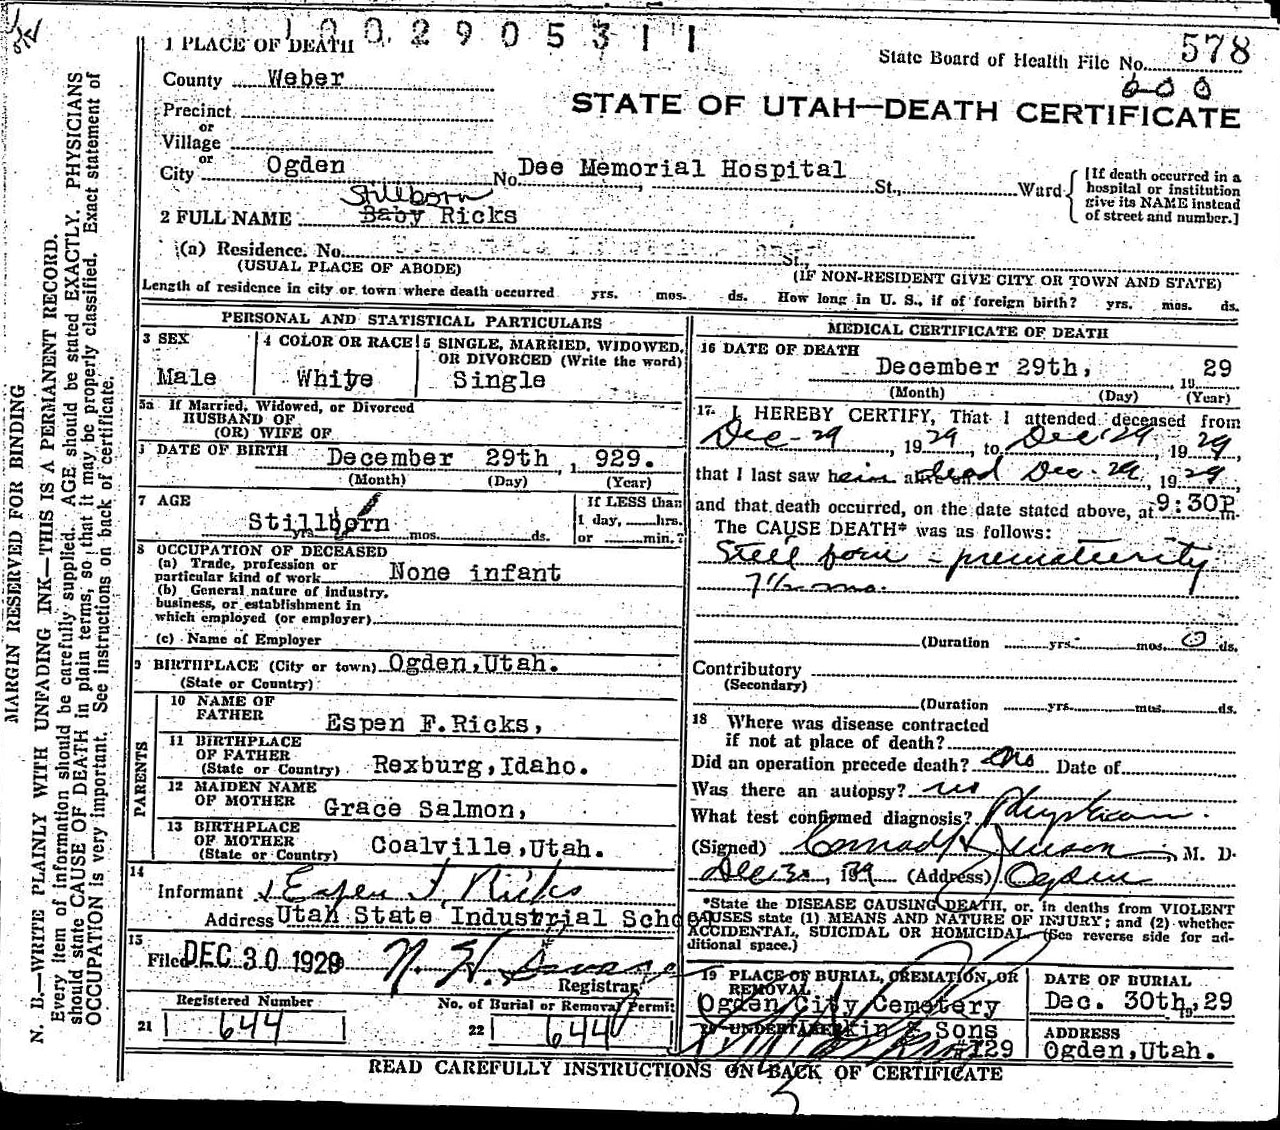 1002905311
1 PLACE OF DEATH
State Board of Health File No. 578
County Weber
600
STATE OF UTAH—DEATH CERTIFICATE
Precinct
or
Village
or
City Ogden No. Dee Memorial Hospital St., Ward
[If death occurred in a
hospital or institution
give its NAME instead
of street and number.]
Stillborn
2 FULL NAME Baby Ricks
(a) Residence. No. St.,
(USUAL PLACE OF ABODE) (IF NON-RESIDENT GIVE CITY OR TOWN AND STATE)
Length of residence in city or town where death occurred yrs. mos. ds. How long in U. S., if of foreign birth? yrs. mos. ds.
PERSONAL AND STATISTICAL PARTICULARS
3 SEX
Male
4 COLOR OR RACE
White
5 SINGLE, MARRIED, WIDOWED,
OR DIVORCED (Write the word)
Single
5a If Married, Widowed, or Divorced
HUSBAND OF
(OR) WIFE OF
DATE OF BIRTH December 29th, 1929.
(Month) (Day) (Year)
7 AGE
Stillborn
yrs. mos. ds.
If LESS than
1 day, hrs.
or min.?
8 OCCUPATION OF DECEASED
(a) Trade, profession or
particular kind of work None infant
(b) General nature of industry,
business, or establishment in
which employed (or employer)
(c) Name of Employer
9 BIRTHPLACE (City or town) Ogden,Utah.
(State or Country)
PARENTS
10 NAME OF
FATHER Espen F.Ricks,
11 BIRTHPLACE
OF FATHER
(State or Country) Rexburg,Idaho.
12 MAIDEN NAME
OF MOTHER Grace Salmon,
13 BIRTHPLACE
OF MOTHER
(State or Country) Coalville,Utah.
14
Informant Espen F. Ricks
Address Utah State Industrial School
15
Filed DEC 30 1929
Registrar
Registered Number
21 644
No. of Burial or Removal Permit
22 644
MEDICAL CERTIFICATE OF DEATH
16 DATE OF DEATH
December 29th, 1929
(Month) (Day) (Year)
17 I HEREBY CERTIFY, That I attended deceased from
Dec-29, 1929 to Dec 29, 1929
that I last saw him dead Dec-29, 1929,
and that death occurred, on the date stated above, at 9:30P m.
The CAUSE DEATH* was as follows:
Still born - prematurity
7½ mo.
(Duration yrs. mos. 0 ds.
Contributory
(Secondary)
(Duration yrs. mos. ds.
18 Where was disease contracted
if not at place of death?
Did an operation precede death? no Date of
Was there an autopsy? no
What test confirmed diagnosis? Physician.
(Signed) Conrad H Jenson, M. D.
Dec 30, 1929 (Address) Ogden
*State the DISEASE CAUSING DEATH, or, in deaths from VIOLENT
CAUSES state (1) MEANS AND NATURE OF INJURY; and (2) whether
ACCIDENTAL, SUICIDAL OR HOMICIDAL. (See reverse side for ad-
ditional space.)
19 PLACE OF BURIAL, CREMATION, OR
REMOVAL
Ogden City Cemetery
DATE OF BURIAL
Dec. 30th, 1929
20 UNDERTAKER & Sons
#129
ADDRESS
Ogden,Utah.
READ CAREFULLY INSTRUCTIONS ON BACK OF CERTIFICATE
MARGIN RESERVED FOR BINDING
N. B.—WRITE PLAINLY WITH UNFADING INK—THIS IS A PERMANENT RECORD.
Every item of information should be carefully supplied. AGE should be stated EXACTLY. PHYSICIANS
should state CAUSE OF DEATH in plain terms, so that it may be properly classified. Exact statement of
OCCUPATION is very important. See instructions on back of certificate.